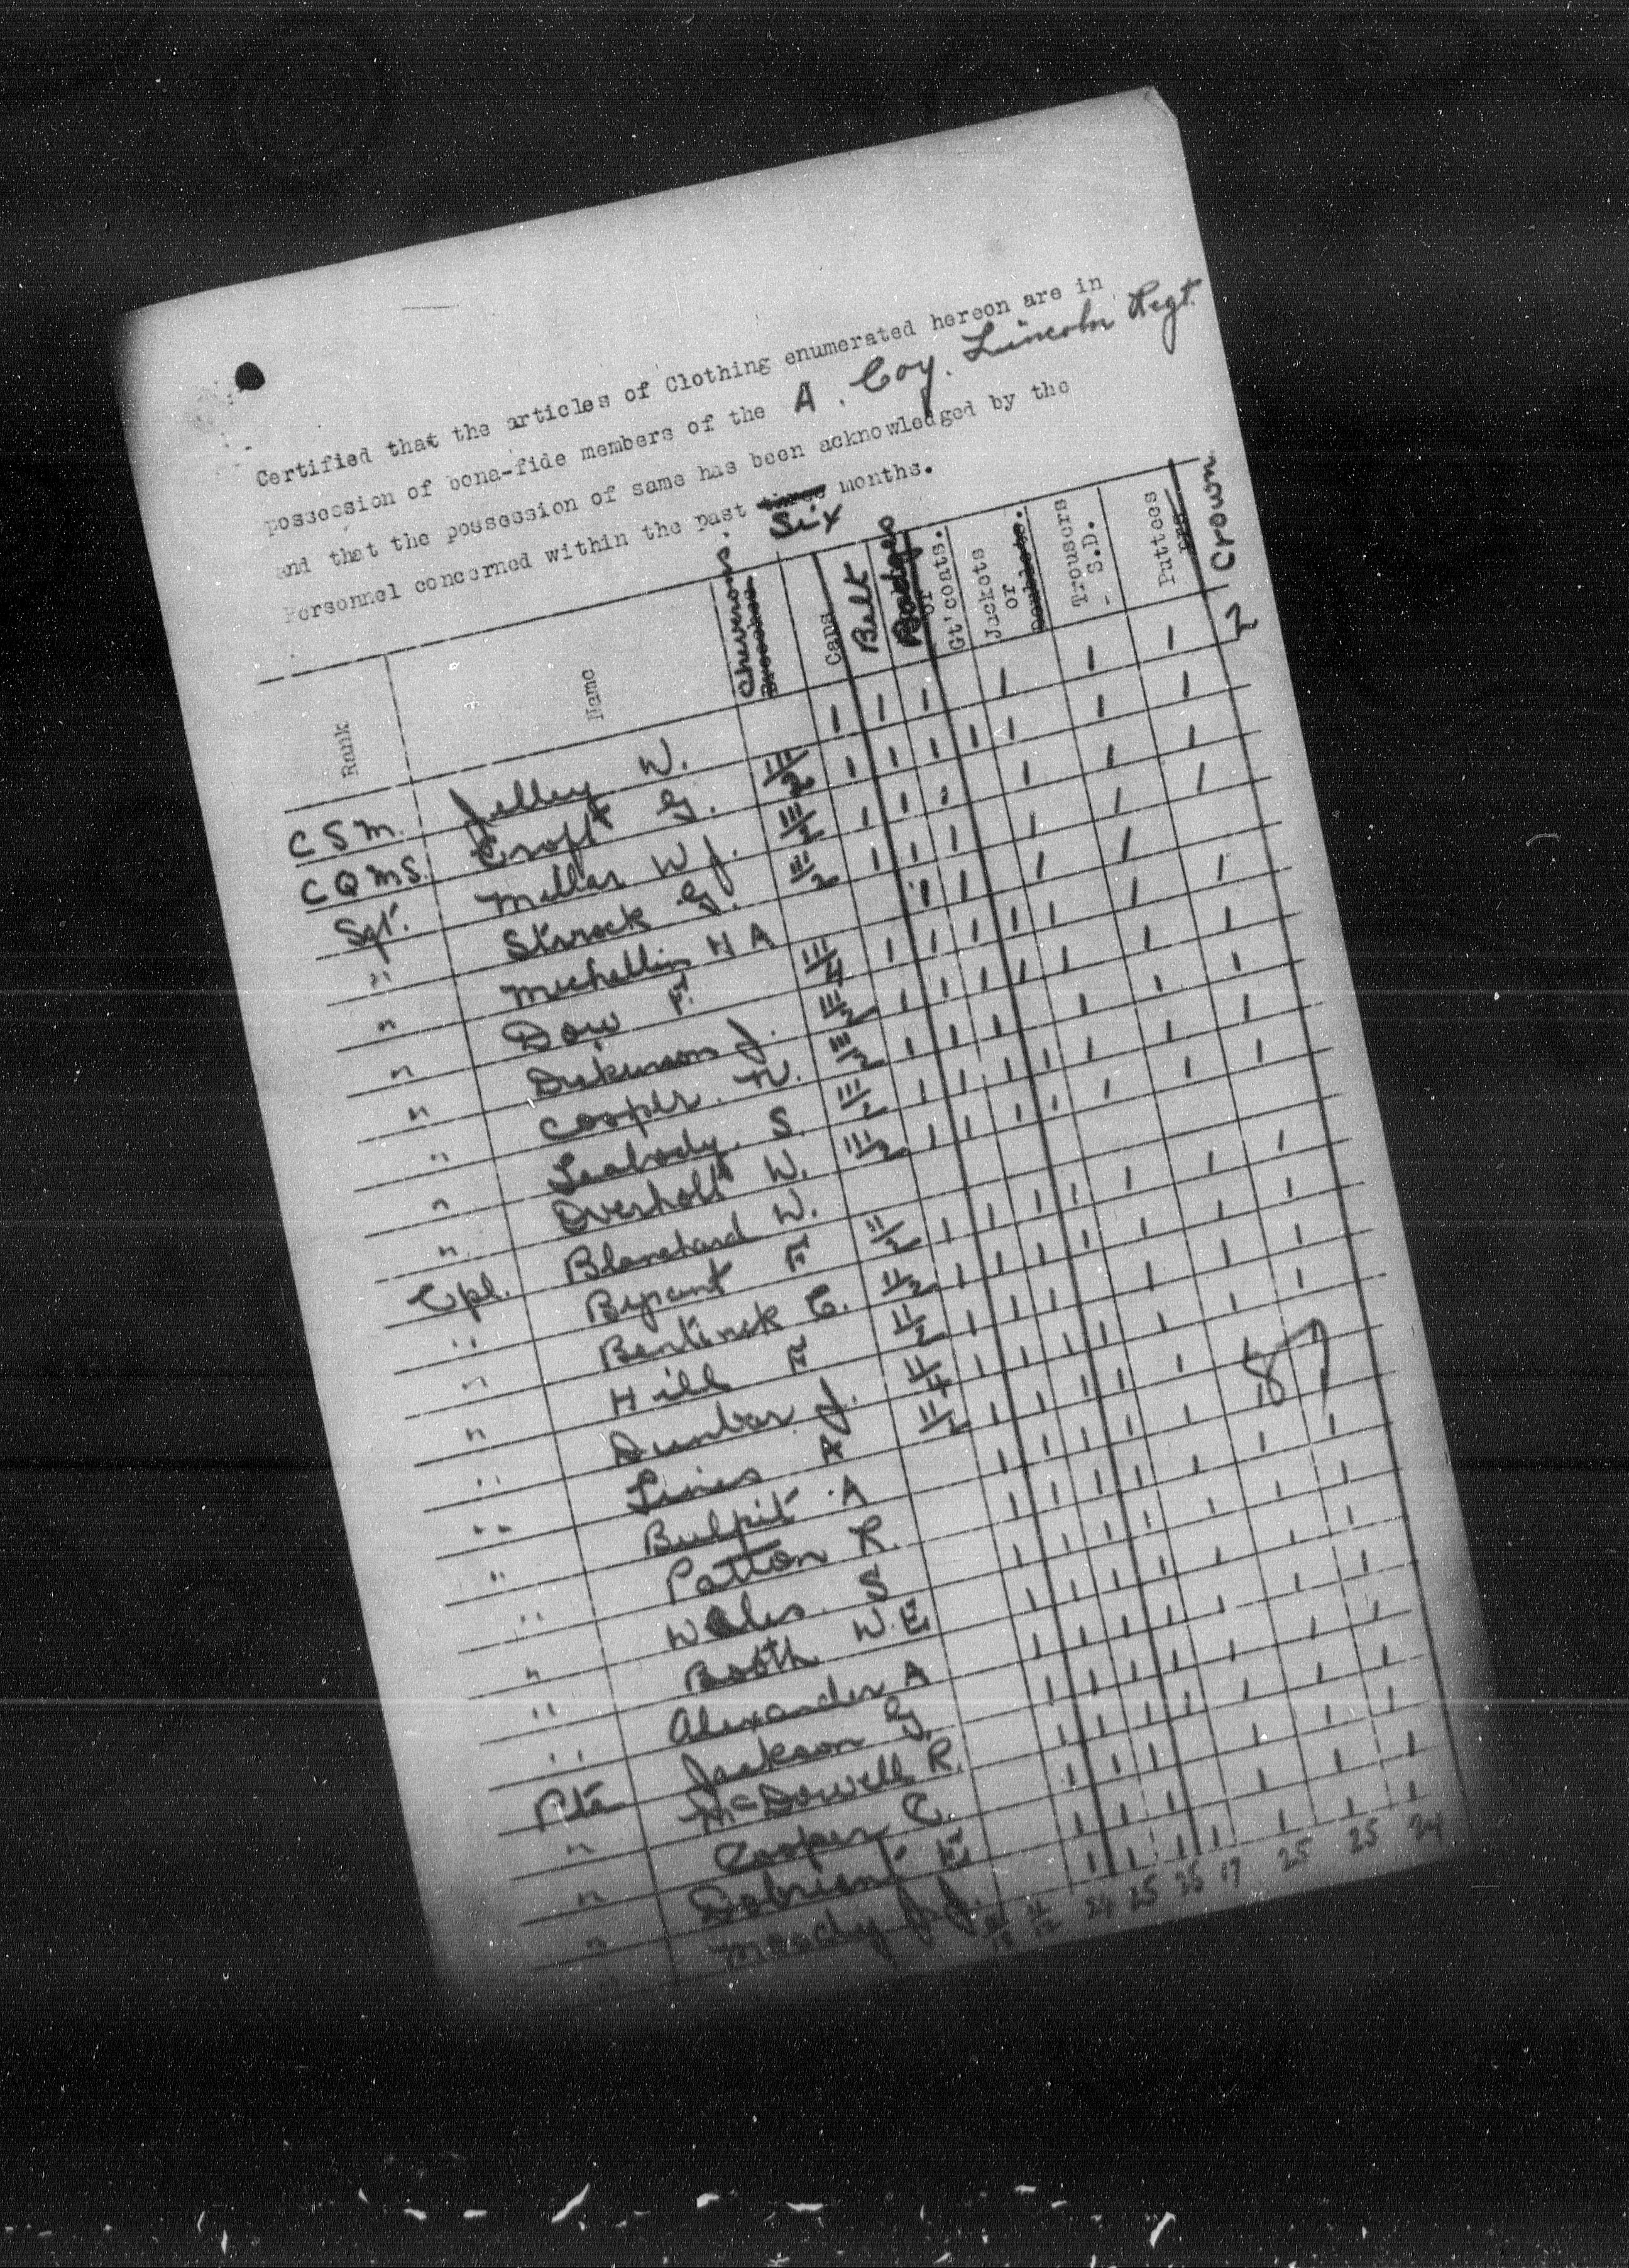 Certified that the articles of Clothing enumerated hereon are in
possession of bona-fide members of the A. Coy. Lincoln Regt.
and that the possession of same has been acknowledged by the
Personnel concerned within the past three Six months.
Rank Name Chevrons. Caps Belt Badges or Gt'coats. Jackets or Doublets. Trousers - S.D. Puttees Crown
C S M. Jelley W. 1 1 1 1 1 1 2
C Q M S. Croft G. III/2 1 1 1 1 1 1 1
Sgt. Millar W J. III/2 1 1 1 1 1 1
" Strrock G. III/2 1 1 1 1 1 1
" Michellin H A 1 1 1 1
" Dow F. III/4 1 1 1 1 1 1 1
" Dickinson J. III/2 1 1 1 1 1 1 1
" Cooper. W. III/2 1 1 1 1 1 1
" Leabody. S. III/2 1 1 1 1 1 1 1
" Overholt W. III/2 1 1 1 1 1 1 1
Cpl. Blanchard W.
" Bryant F II/2 1 1 1 1 1 1 1
" Bentinck C. II/2 1 1 1 1 1 1 1
" Hill F II/2 1 1 1 1 1 1
" Dunbar J. II/4 1 1 1 1 1 1 1
" Lines A II/2 1 1 1 1 1
" Bulpit A 1 1 1 1 1 1 1
" Patton R. 1 1 1 1 1 1 1
" Wales. S 1 1 1 1 1 1 1
" Booth W. E 1 1 1 1 1 1 1
" Alexander A 1 1 1 1 1 1 1
Pte Jackson G. 1 1 1 1 1 1 1
" McDowell R. 1 1 1 1 1 1
" Cooper C. 1 1 1 1 1 1
" E
" Moody J J. 1 1 1 1 1 1 1
25 25 17 25 25 24
87